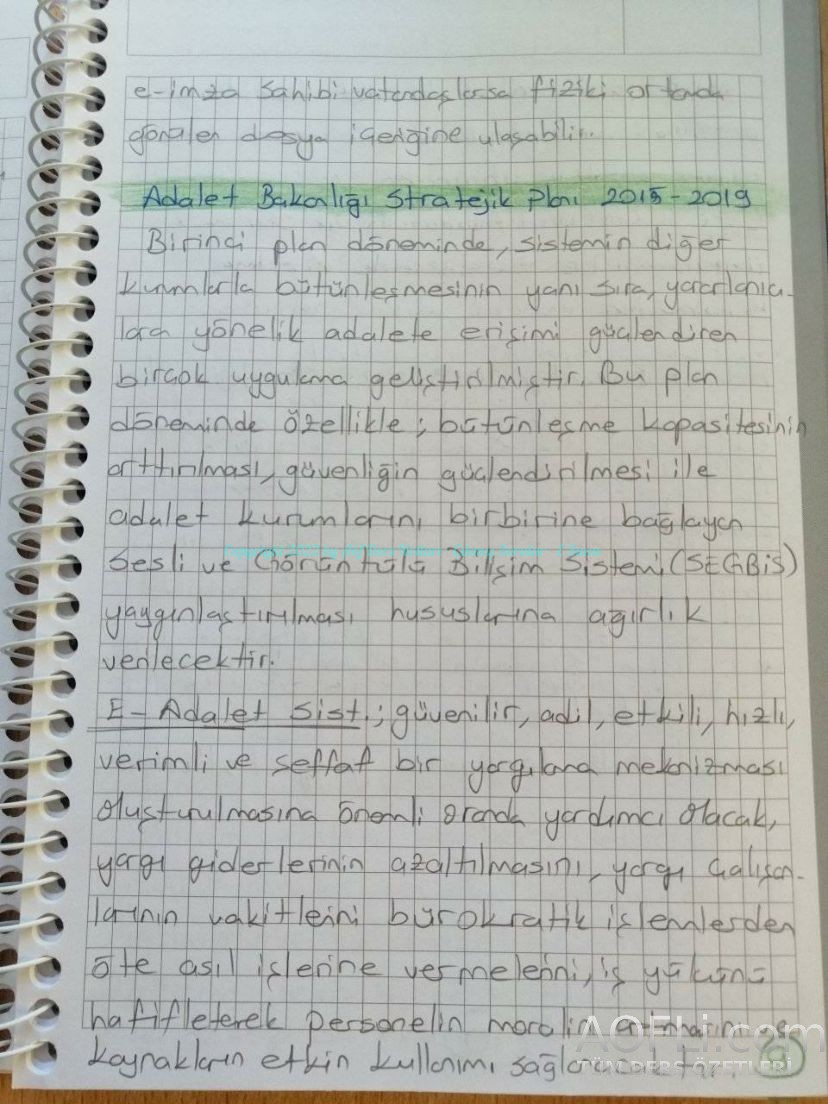 e-imza sahibi vatandaşlarsa fiziki ortamda
görülen dosya içeriğine ulaşabilir.
Adalet Bakanlığı Stratejik Planı 2015-2019
Birinci plan döneminde, sistemin diğer
kurumlarla bütünleşmesinin yanı sıra, yararlanıcı-
lara yönelik adalete erişimi güçlendiren
birçok uygulama geliştirilmiştir. Bu plan
döneminde özellikle; bütünleşme kapasitesinin
arttırılması, güvenliğin güçlendirilmesi ile
adalet kurumlarını birbirine bağlayan
Sesli ve Görüntülü Bilişim Sistemi (SEGBİS)
yaygınlaştırılması hususlarına ağırlık
verilecektir.
E-Adalet Sist.; güvenilir, adil, etkili, hızlı,
verimli ve şeffaf bir yargılama mekanizması
oluşturulmasına önemli oranda yardımcı olacak,
yargı giderlerinin azaltılmasını, yargı çalışan-
larının vakitlerini bürokratik işlemlerden
öte asıl işlerine vermelerini, iş yükünü
hafifleterek personelin moralin artmasını ve
kaynakların etkin kullanımı sağlanacaktır.
AOFLi.com